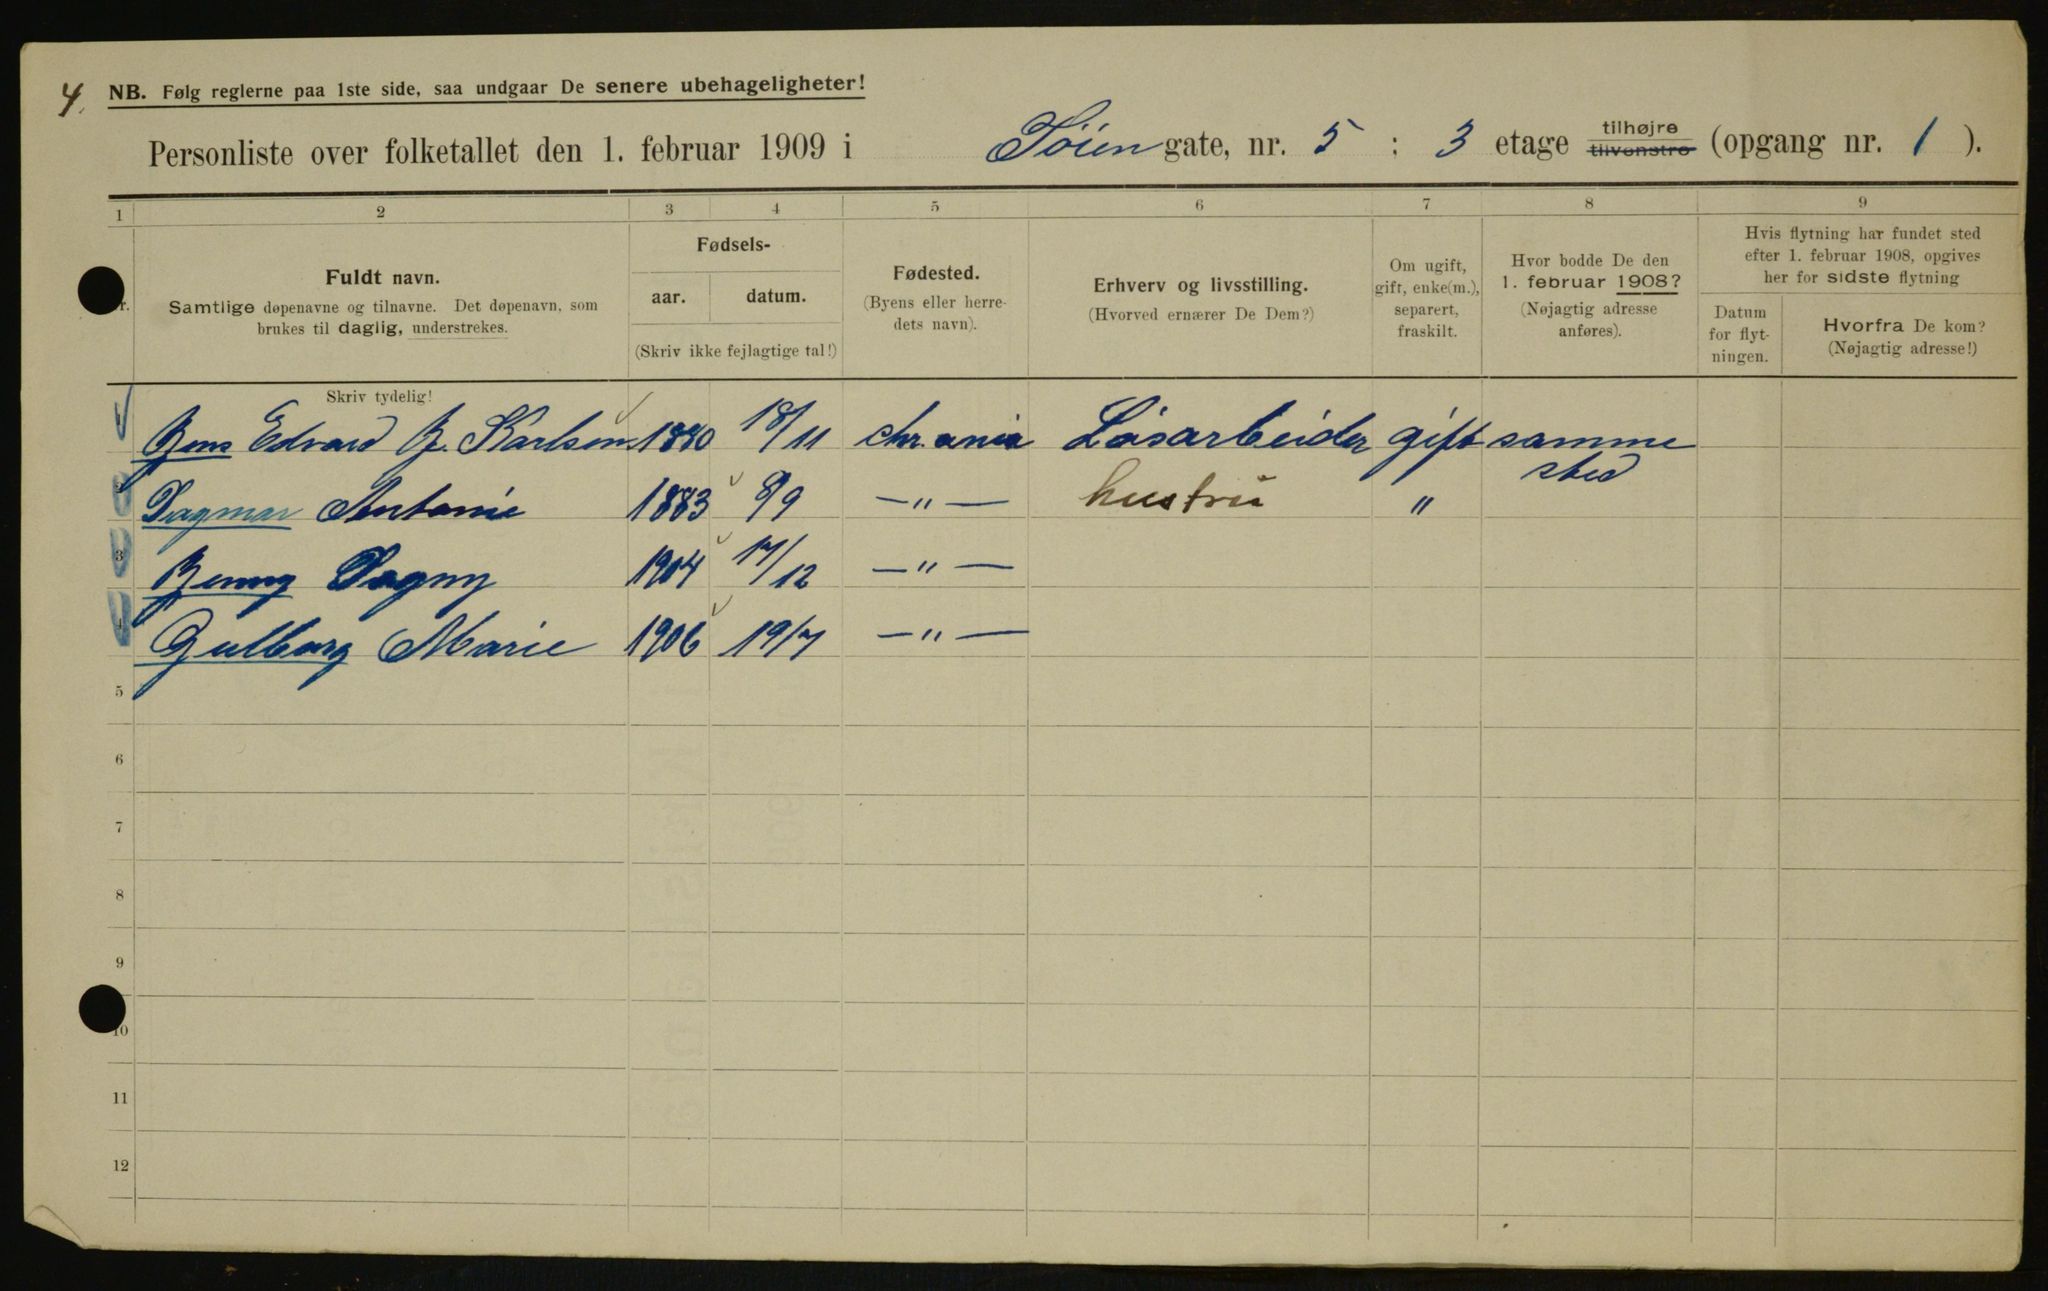 4.
NB. Følg reglerne paa 1ste side, saa undgaar De senere ubehageligheter!
Personliste over folketallet den 1. februar 1909 i Töien gate, nr. 5 : 3 etage tilhøjre tilvenstre (opgang nr. 1 ).
1 2 3 4 5 6 7 8 9
Fuldt navn.
Samtlige døpenavne og tilnavne. Det døpenavn, som
brukes til daglig, understrekes.
Skriv tydelig!
Fødsels-
aar. datum.
(Skriv ikke fejlagtige tal!)
Fødested.
(Byens eller herre-
dets navn).
Erhverv og livsstilling.
(Hvorved ernærer De Dem?)
Om ugift,
gift, enke(m.),
separert,
fraskilt.
Hvor bodde De den
1. februar 1908?
(Nøjagtig adresse
anføres).
Hvis flytning har fundet sted
efter 1. februar 1908, opgives
her for sidste flytning
Datum
for flyt-
ningen.
Hvorfra De kom?
(Nøjagtig adresse!)
Jens Edvard J. Karlsen 1880 18/11 chr.ania Løsarbeider gift samme
sted
Dagmar Antonie 1883 8/9 —"— hustru "
3 Jenny Dagny 1904 17/12 —"—
4 Gulborg Marie 1906 19/7 —"—
5
6
7
8
9
10
11
12